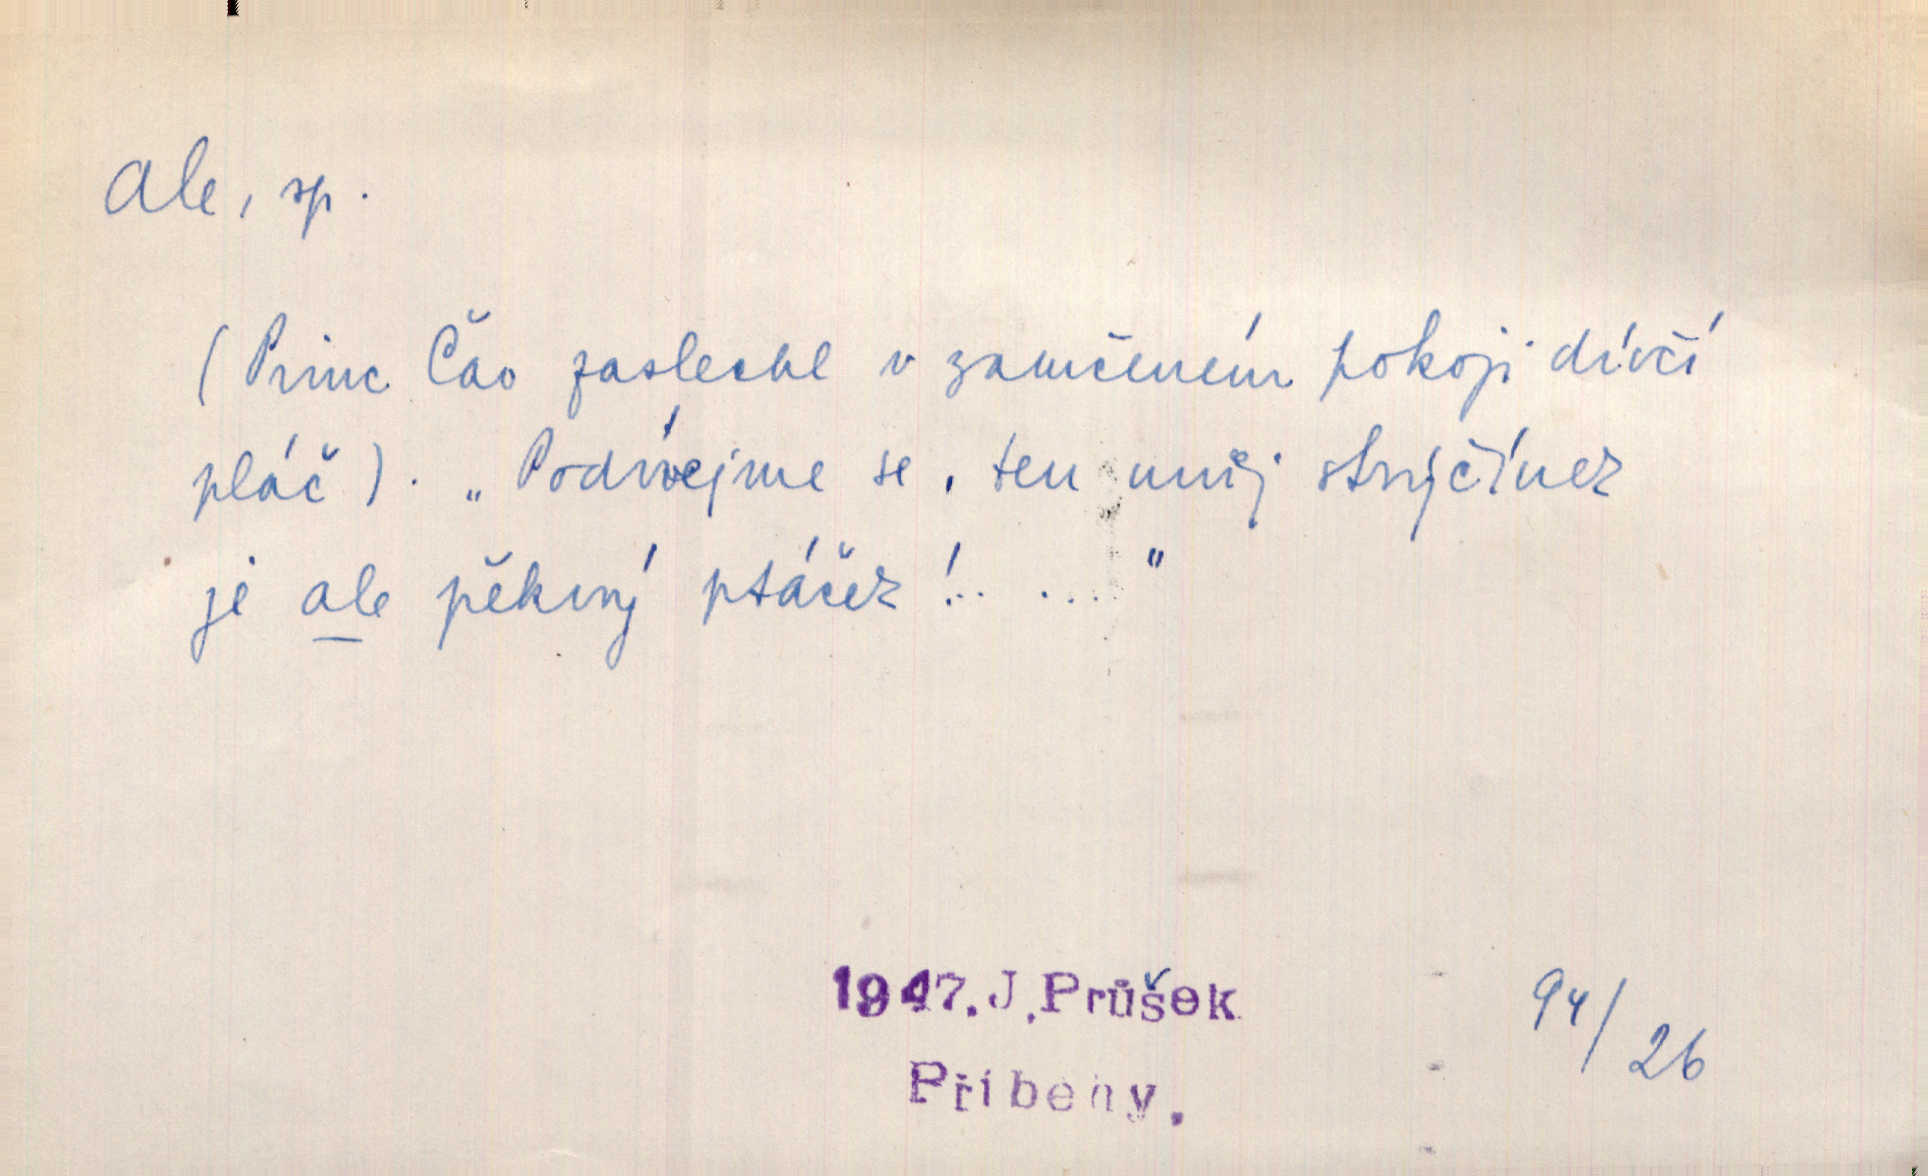 ale, sp.
(Princ Čao zaslechl v zamčeném pokoji dívčí
pláč). „Podívejme se, ten můj strýčínek
je ale pěkný ptáček!.. ...."
1947. J. Průšek
94/26
Příběhy.